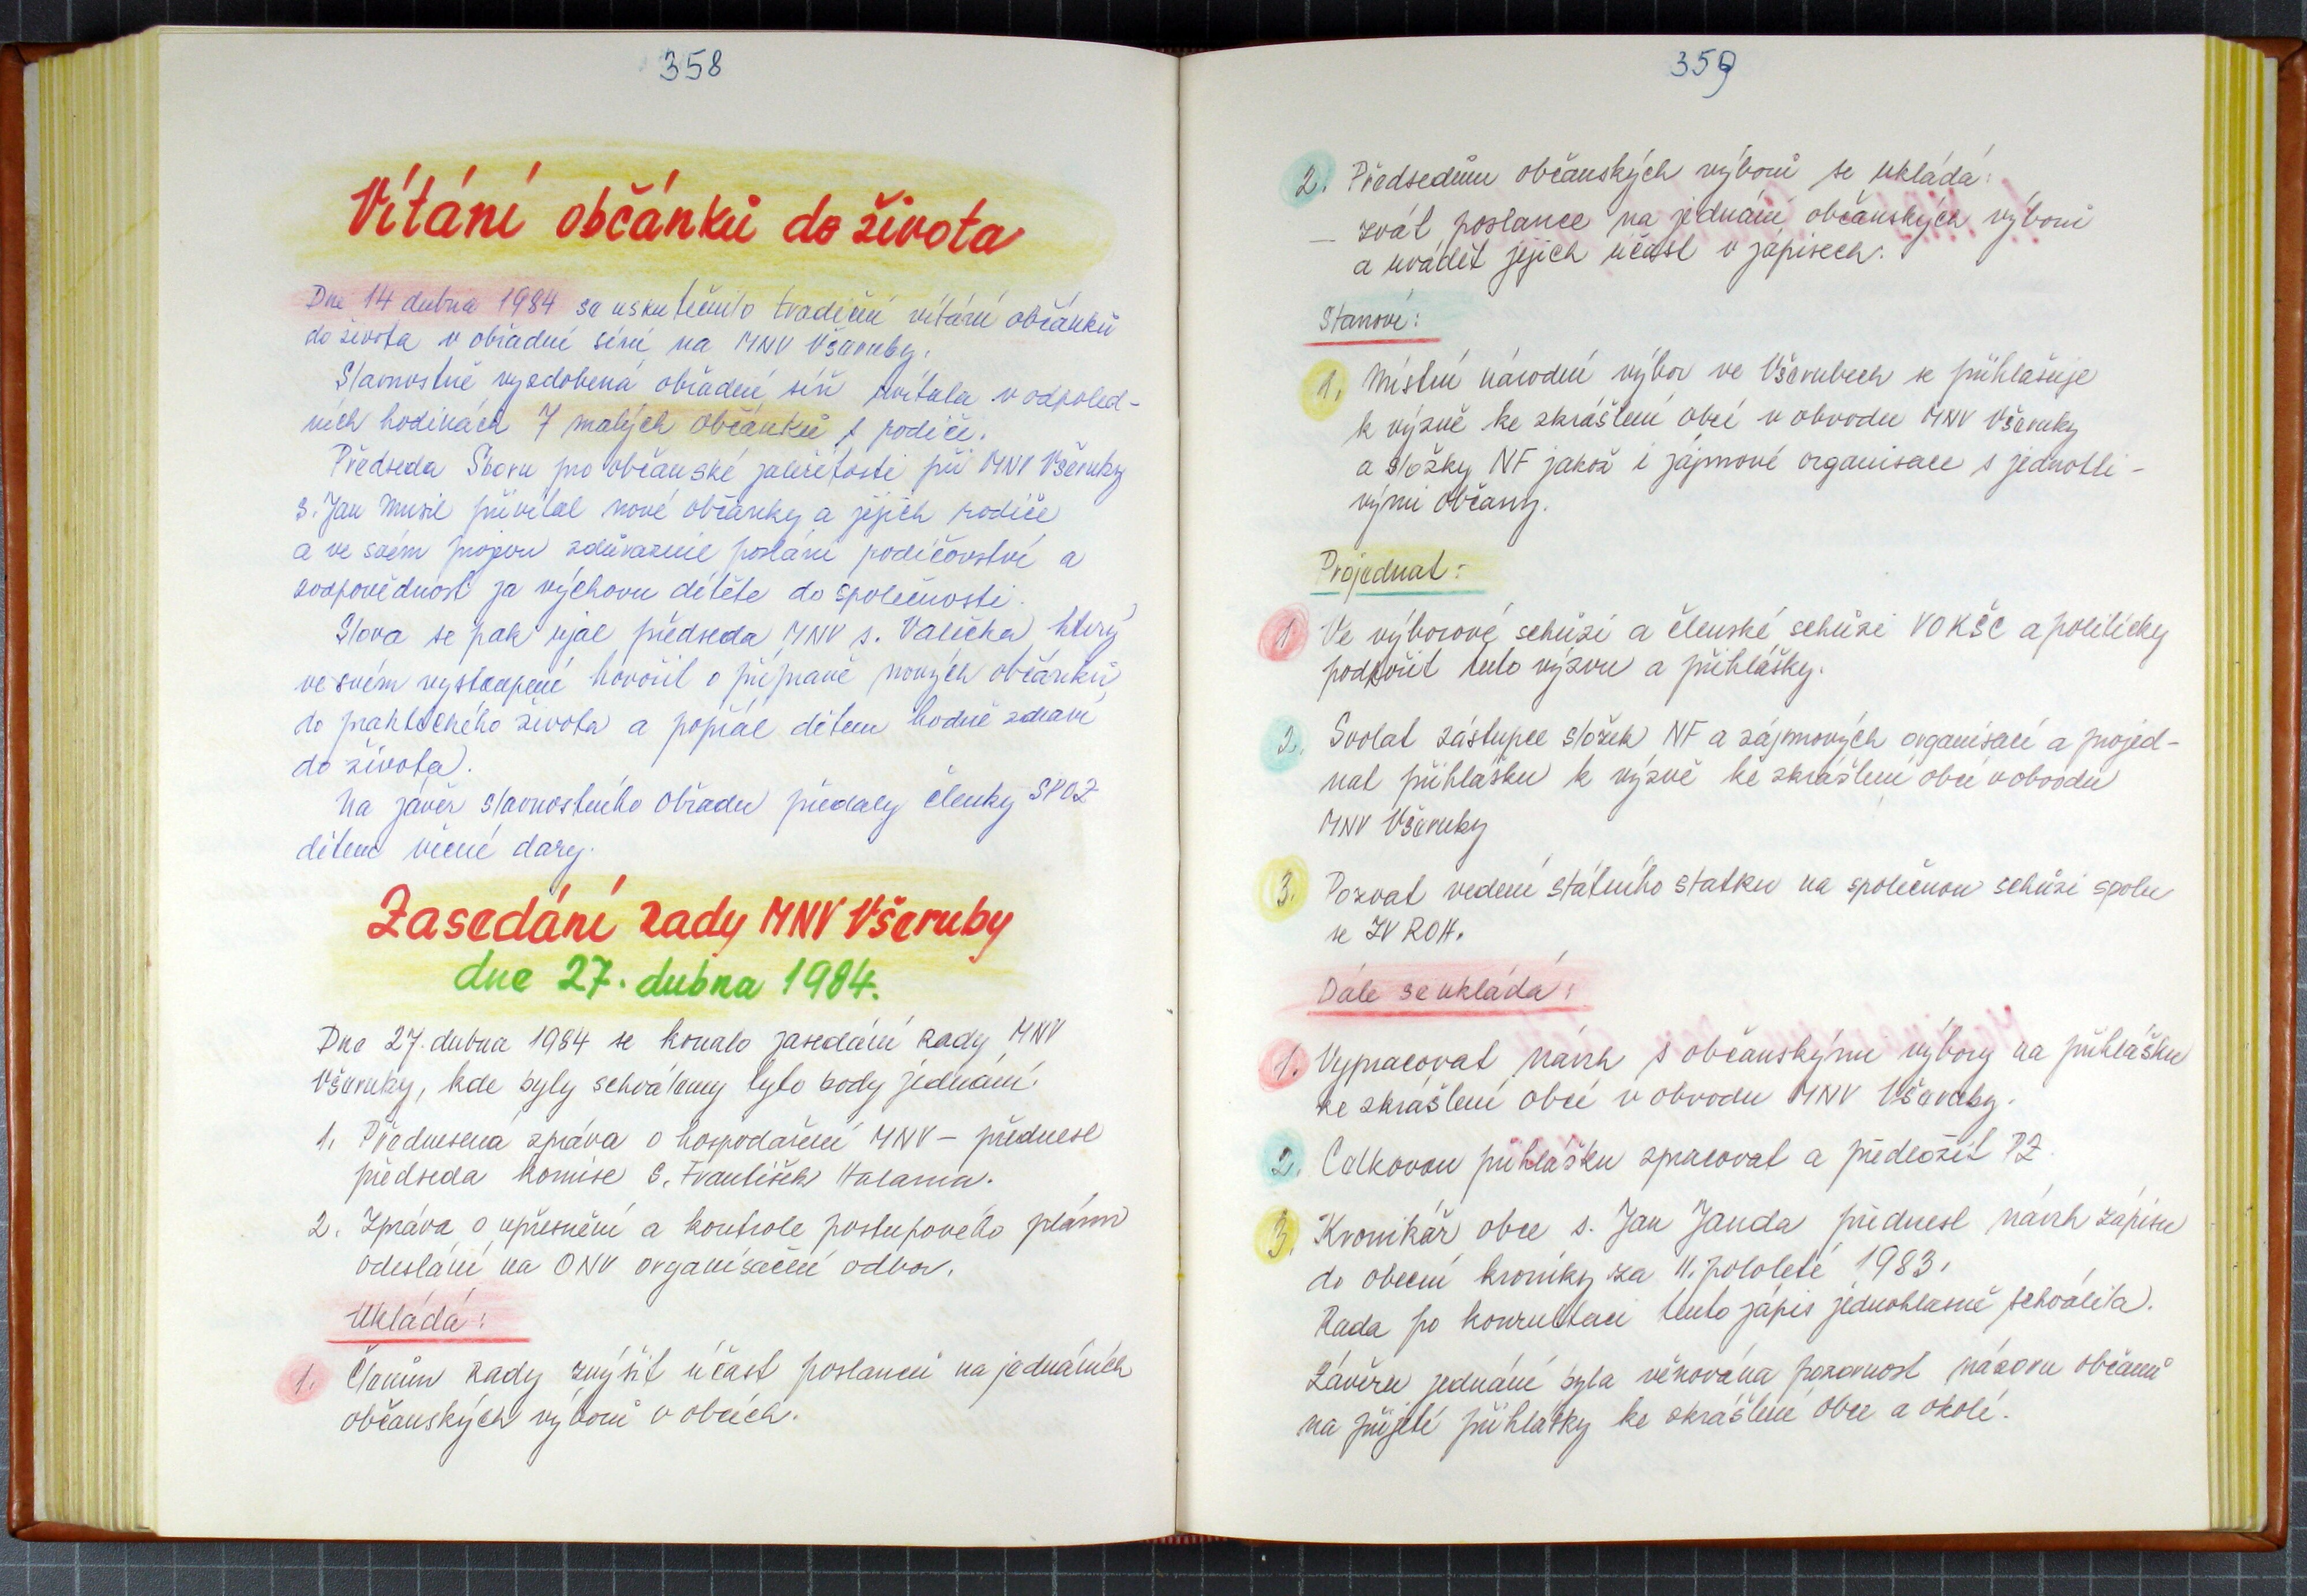 358
Vítání občánků do života
Dne 14 dubna 1984 se uskutečnilo tradiční vítání občánků
do života v obřadní síni na MNV Všeruby.
Slavnostně vyzdobená obřadní síň uvítala v odpoled-
ních hodinách 7 malých občánků s rodiči.
Předseda Sboru pro občanské záležitosti při MNV Všeruby
s. Jan Musil přivítal nové občánky a jejich rodiče
a ve svém projevu zdůraznil poslání rodičovství a
zodpovědnost za výchovu dítěte do společnosti.
Slova se pak ujal předseda MNV s. Valečka, který
ve svém vystoupení hovořil o přípravě nových občánků
do praktického života a popřál dětem hodně zdraví
do života.
Na závěr slavnostního obřadu předaly členky SPOZ
dětem věcné dary.
Zasedání rady MNV Všeruby
dne 27. dubna 1984.
Dne 27. dubna 1984 se konalo zasedání Rady MNV
Všeruby, kde byly schváleny tyto body jednání:
1. Přednesená zpráva o hospodaření MNV – přednesl
předseda komise s. František Halama.
2. Zpráva o upřesnění a kontrole postupového plánu
odeslání na ONV organisační odbor.
Ukládá:
1. Členům Rady zvýšit účast poslanců na jednáních
občanských výborů v obcích.
359
2. Předsedům občanských výborů se ukládá:
– zvát poslance na jednání občanských výborů
a uvádět jejich účast v zápisech.
Stanoví:
1. Místní národní výbor ve Všerubech se přihlašuje
k výzvě ke zkrášlení obcí v obvodu MNV Všeruby
a složky NF jakož i zájmové organisace s jednotli-
vými občany.
Projednat:
1. Ve výborové schůzi a členské schůzi VOKSČ a politicky
podpořit tuto výzvu a přihlášky.
2. Svolat zástupce složek NF a zájmových organisací a projed-
nat přihlášku k výzvě ke zkrášlení obcí v obvodu
MNV Všeruby
3. Pozvat vedení státního statku na společnou schůzi spolu
se ZV ROH.
Dále se ukládá:
1. Vypracovat návrh s občanskými výbory na přihlášku
ke zkrášlení obcí v obvodu MNV Všeruby.
2. Celkovou přihlášku zpracovat a předložit PZ.
3. Kronikář obce s. Jan Janda přednesl návrh zápisu
do obecní kroniky za II. pololetí 1983.
Rada po konzultaci tento zápis jednohlasně schválila.
Závěru jednání byla věnována pozornost názoru občanů
na přijetí přihlášky ke zkrášlení obce a okolí.